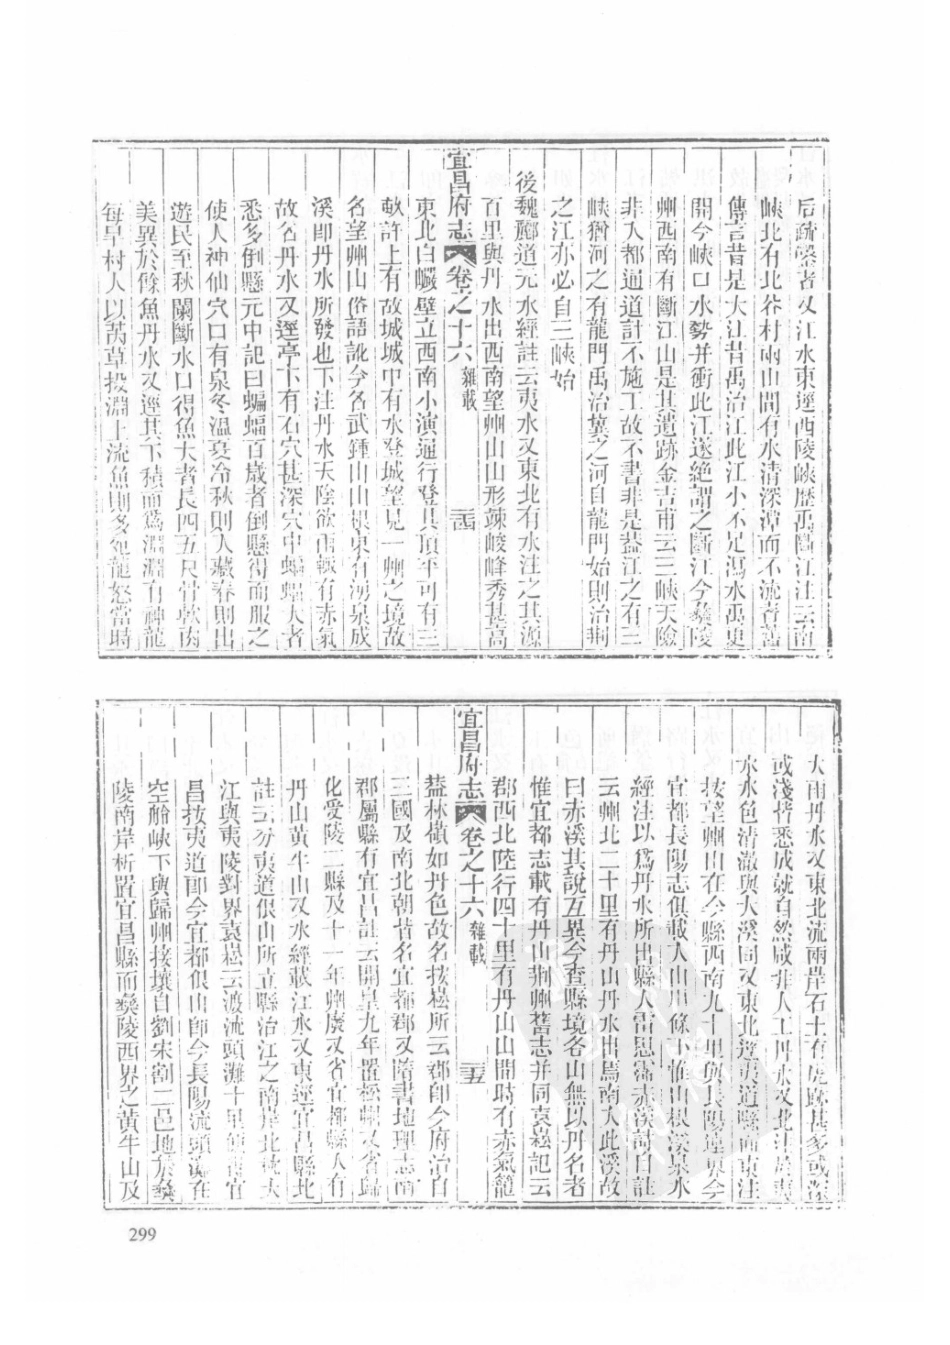 后疏鑿者又江水東逕西陵峽歷禹斷江注云南
峽北有北谷村兩山間有水清深潭而不流耆舊
傳言昔是大江昔禹治江此江小不足瀉水禹更
開今峽口水勢并衝此江遂絕謂之斷江今彝陵
州西南有斷江山是其遺跡金吉甫云三峽天險
非人都通道計不施工故不書非是葢江之有三
峽猶河之有龍門禹治冀之河自龍門始則治荆
之江亦必自三峽始
後魏酈道元水經註云夷水又東北有水注之其源
百里與丹水出西南望州山山形竦峻峰秀甚高
宜昌府志 卷之十六 雜載 三四
東北白巖壁立西南小演通行登其頂平可有三
畝許上有故城城中有水登城望見一州之境故
名望州山俗語訛今名武鍾山山根東有湧泉成
溪即丹水所發也下注丹水天陰欲雨輒有赤氣
故名丹水又逕亭下有石穴甚深穴中蝙蝠大者
悉多倒懸元中記曰蝙蝠百歲者倒懸得而服之
使人神仙穴口有泉冬溫夏冷秋則入藏春則出
遊民至秋闌斷水口得魚大者長四五尺骨軟肉
美異於餘魚丹水又逕其下積而爲淵淵有神龍
每旱村人以芮草投淵上流魚則多死龍怒當時
大雨丹水又東北流兩岸石上有虎跡甚多或深
或淺皆悉成就自然咸非人工丹水又北注於夷
水水色清澈與大溪同又東北逕夷道縣而東注
按望州山在今縣西南九十里與長陽連東今
宜都長陽志俱載入山川條下惟山根溪泉水
經注以爲丹水所出縣人雷思霈赤溪詩自註
云州北二十里有丹山丹水出焉南入此溪故
曰赤溪其說互異今查縣境各山無以丹名者
惟宜都志載有丹山荆州舊志并同袁崧記云
郡西北陸行四十里有丹山山間時有赤氣籠
宜昌府志 卷之十六 雜載 三五
葢林嶺如丹色故名按崧所云郡即今府治自
三國及南北朝皆名宜都郡又隋書地理志南
郡屬縣有宜昌註云開皇九年置松州又省歸
化受陵二縣及十一年州廢又省宜都縣入有
丹山黃牛山又水經載江水又東逕宜昌縣北
註云分夷道佷山所立縣治江之南岸北枕大
江與夷陵對界袁崧云渡流頭灘十里便得宜
昌按夷道即今宜都佷山即今長陽流頭灘在
空舲峽下與歸州接壤自劉宋割二邑地於彝
陵南岸析置宜昌縣而彝陵西界之黃牛山及
299